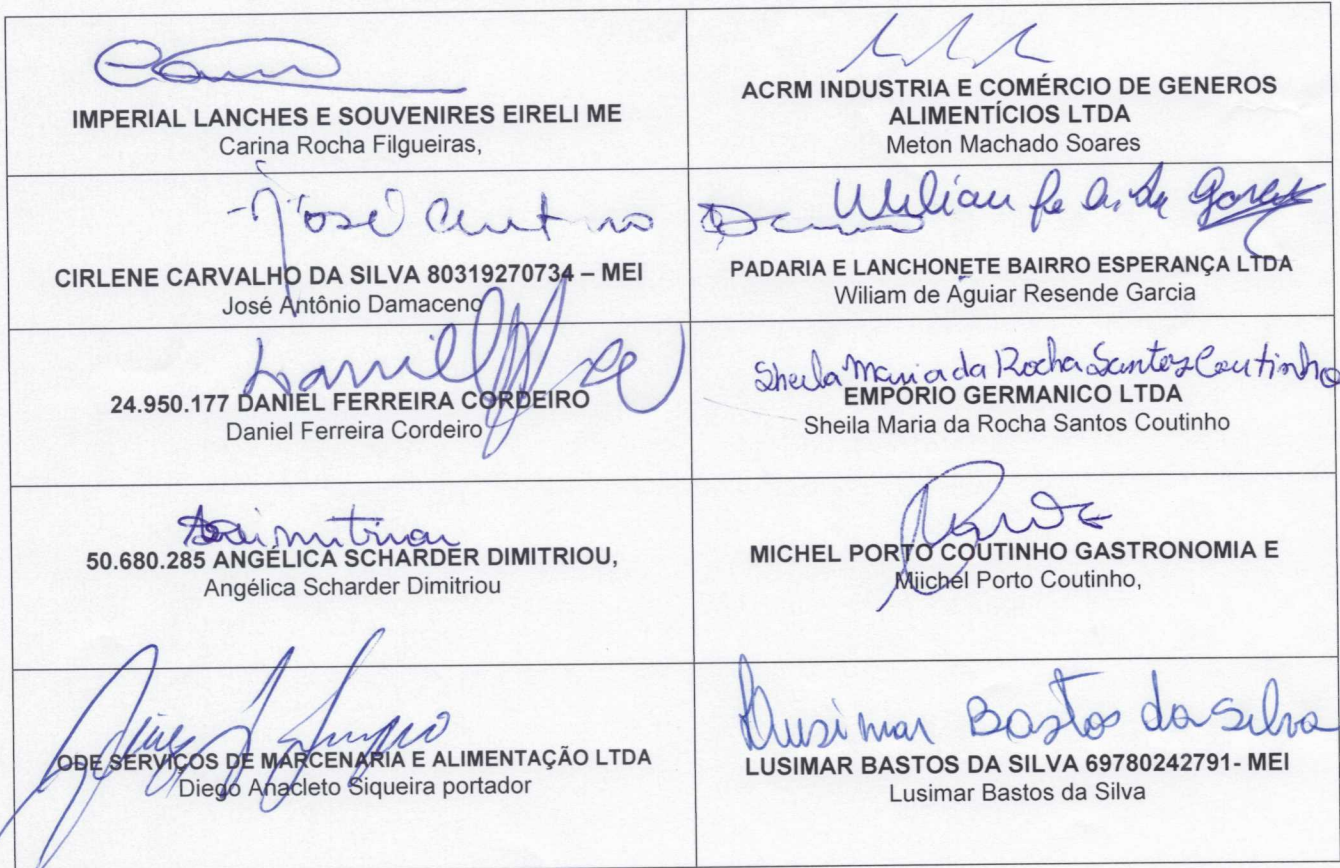 IMPERIAL LANCHES E SOUVENIRES EIRELI ME
Carina Rocha Filgueiras,
ACRM INDUSTRIA E COMÉRCIO DE GENEROS
ALIMENTÍCIOS LTDA
Meton Machado Soares
José
CIRLENE CARVALHO DA SILVA 80319270734 – MEI
José Antônio Damaceno
Wiliam
PADARIA E LANCHONETE BAIRRO ESPERANÇA LTDA
Wiliam de Aguiar Resende Garcia
Daniel
24.950.177 DANIEL FERREIRA CORDEIRO
Daniel Ferreira Cordeiro
Sheila Maria da Rocha Santos Coutinho
EMPORIO GERMANICO LTDA
Sheila Maria da Rocha Santos Coutinho
50.680.285 ANGÉLICA SCHARDER DIMITRIOU,
Angélica Scharder Dimitriou
MICHEL PORTO COUTINHO GASTRONOMIA E
Miichel Porto Coutinho,
ODE SERVIÇOS DE MARCENARIA E ALIMENTAÇÃO LTDA
Diego Anacleto Siqueira portador
Lusimar Bastos da Silva
LUSIMAR BASTOS DA SILVA 69780242791- MEI
Lusimar Bastos da Silva